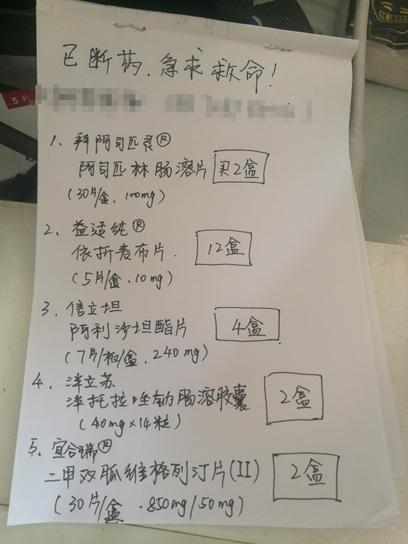 已断药,急求救命!
1、拜阿司匹灵®
阿司匹林肠溶片 买2盒
(30片/盒、100mg)
2、益适纯®
依折麦布片. 12盒
(5片/盒、10mg)
3、信立坦
阿利沙坦酯片 4盒
(7片/板/盒、240mg)
4、泮立苏
泮托拉唑钠肠溶胶囊 2盒
(40mg×14粒)
5、宜合瑞®
二甲双胍维格列汀片(II) 2盒
(30片/盒、850mg/50mg)